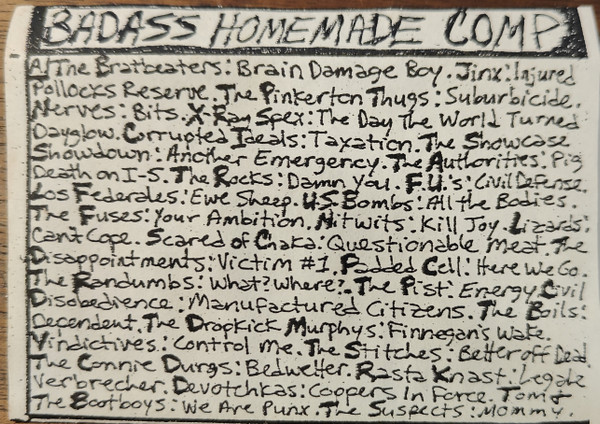 BADASS HOMEMADE COMP
A/The Bratbeaters: Brain Damage Boy. Jinx: Injured
Pollocks Reserve. The Pinkerton Thugs: Suburbicide.
Nerves: Bits. X-Ray Spex: The Day The World Turned
Dayglow. Corrupted Ideals: Taxation. The Showcase
Showdown: Another Emergency. The Authorities: Pig
Death on I-5. The Rocks: Damn You. F.U.'s: Civil Defense.
Los Federales: Ewe Sheep. U.S. Bombs: All the Bodies.
The Fuses: Your Ambition. Nitwits: Kill Joy. Lizards:
Can't Cope. Scared of Chaka: Questionable Meat. The
Disappointments: Victim #1. Padded Cell: Here We Go.
The Randumbs: What? Where?. The Pist: Energy. Civil
Disobedience: Manufactured Citizens. The Boils:
Decendent. The Dropkick Murphys: Finnegan's Wake.
Vindictives: Control Me. The Stitches: Better off Dead
The Connie Dungs: Bedwetter. Rasta Knast: Legale
Verbrecher. Devotchkas: Coppers In Force. Tom &
The Bootboys: We Are Punx. The Suspects: Mommy.